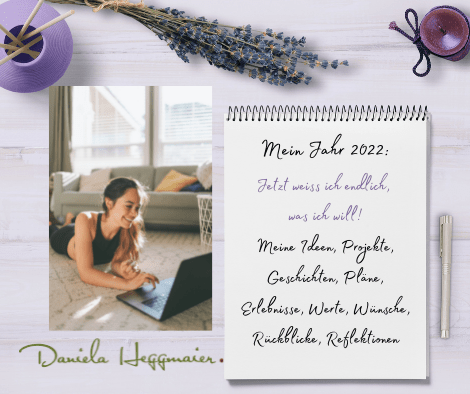 Mein Jahr 2022:
Jetzt weiss ich endlich,
was ich will!
Meine Ideen, Projekte,
Geschichten, Pläne,
Erlebnisse, Werte, Wünsche,
Rückblicke, Reflektionen
Daniela Heggmaier.